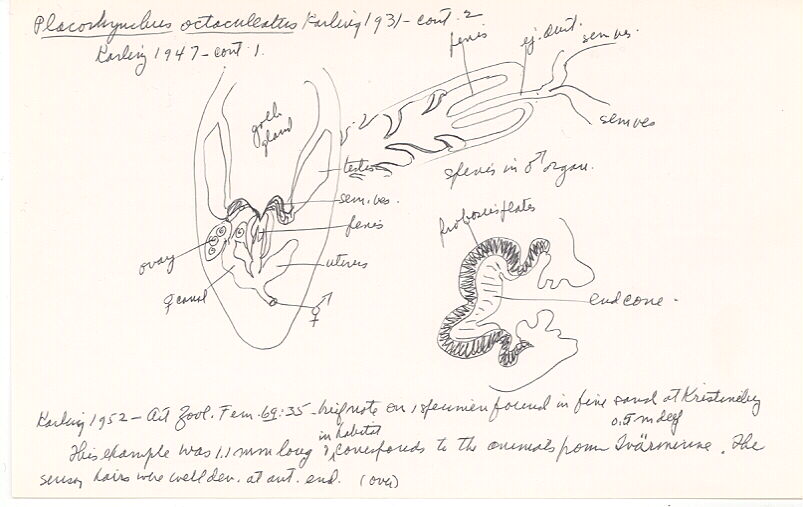 Placorhynchus octaculeatus Karling 1931 - cont. 2
Karling 1947 - cont 1.
penis
ej. duct.
sem ves.
semves
yolk gland
testis
sem. ves.
penis
uterus
ovary
♀ canal
♂
♀
spines in ♂ organ.
proboscis plates
end cone.
Karling 1952 - Art Zool. Fenn. 69: 35 - brief note on 1 specimen found in fine sand at Kristineberg
0.5 m deep
This example was 1.1 mm long & in habitat corresponds to the animals from Tvärminne. The
sensory hairs were well dev. at ant. end. (over)